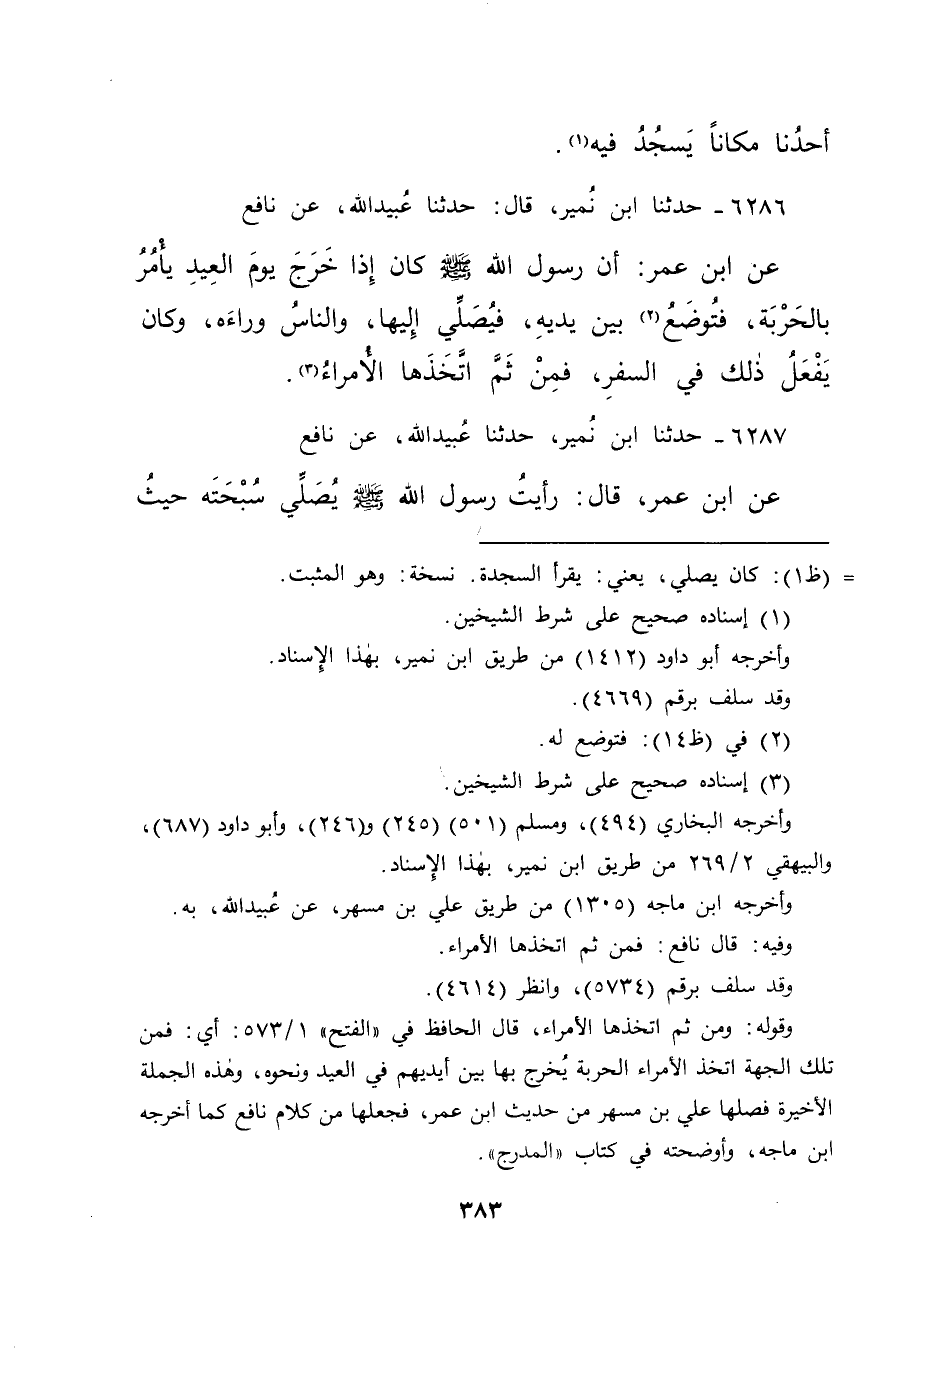 أحدُنا مكاناً يَسجُدُ فيه(١).
٦٢٨٦ - حدثنا ابن نُمير، قال: حدثنا عُبيدالله، عن نافع
عن ابن عمر: أن رسول الله ﷺ كان إِذا خَرَجَ يومَ العِيدِ يأْمُرُ
بالحَرْبَة، فتُوضَعُ(٢) بين يديهِ، فيُصَلِّي إِليها، والناسُ وراءَه، وكان
يَفْعَلُ ذٰلك في السفرِ، فمِنْ ثَمَّ اتَّخَذَها الأُمراءُ(٣).
٦٢٨٧ - حدثنا ابن نُمير، حدثنا عُبيدالله، عن نافع
عن ابن عمر، قال: رأيتُ رسول الله ﷺ يُصَلِّي سُبْحَتَه حيثُ
= (ظ١): كان يصلي، يعني: يقرأ السجدة. نسخة: وهو المثبت.
(١) إسناده صحيح على شرط الشيخين.
وأخرجه أبو داود (١٤١٢) من طريق ابن نمير، بهٰذا الإِسناد.
وقد سلف برقم (٤٦٦٩).
(٢) في (ظ١٤): فتوضع له.
(٣) إسناده صحيح على شرط الشيخين.
وأخرجه البخاري (٤٩٤)، ومسلم (٥٠١) (٢٤٥) و(٢٤٦)، وأبو داود (٦٨٧)،
والبيهقي ٢٦٩/٢ من طريق ابن نمير، بهٰذا الإِسناد.
وأخرجه ابن ماجه (١٣٠٥) من طريق علي بن مسهر، عن عُبيدالله، به.
وفيه: قال نافع: فمن ثم اتخذها الأمراء.
وقد سلف برقم (٥٧٣٤)، وانظر (٤٦١٤).
وقوله: ومن ثم اتخذها الأمراء، قال الحافظ في «الفتح» ٥٧٣/١: أي: فمن
تلك الجهة اتخذ الأمراء الحربة يُخرج بها بين أيديهم في العيد ونحوه، وهٰذه الجملة
الأخيرة فصلها علي بن مسهر من حديث ابن عمر، فجعلها من كلام نافع كما أخرجه
ابن ماجه، وأوضحته في كتاب «المدرج».
٣٨٣